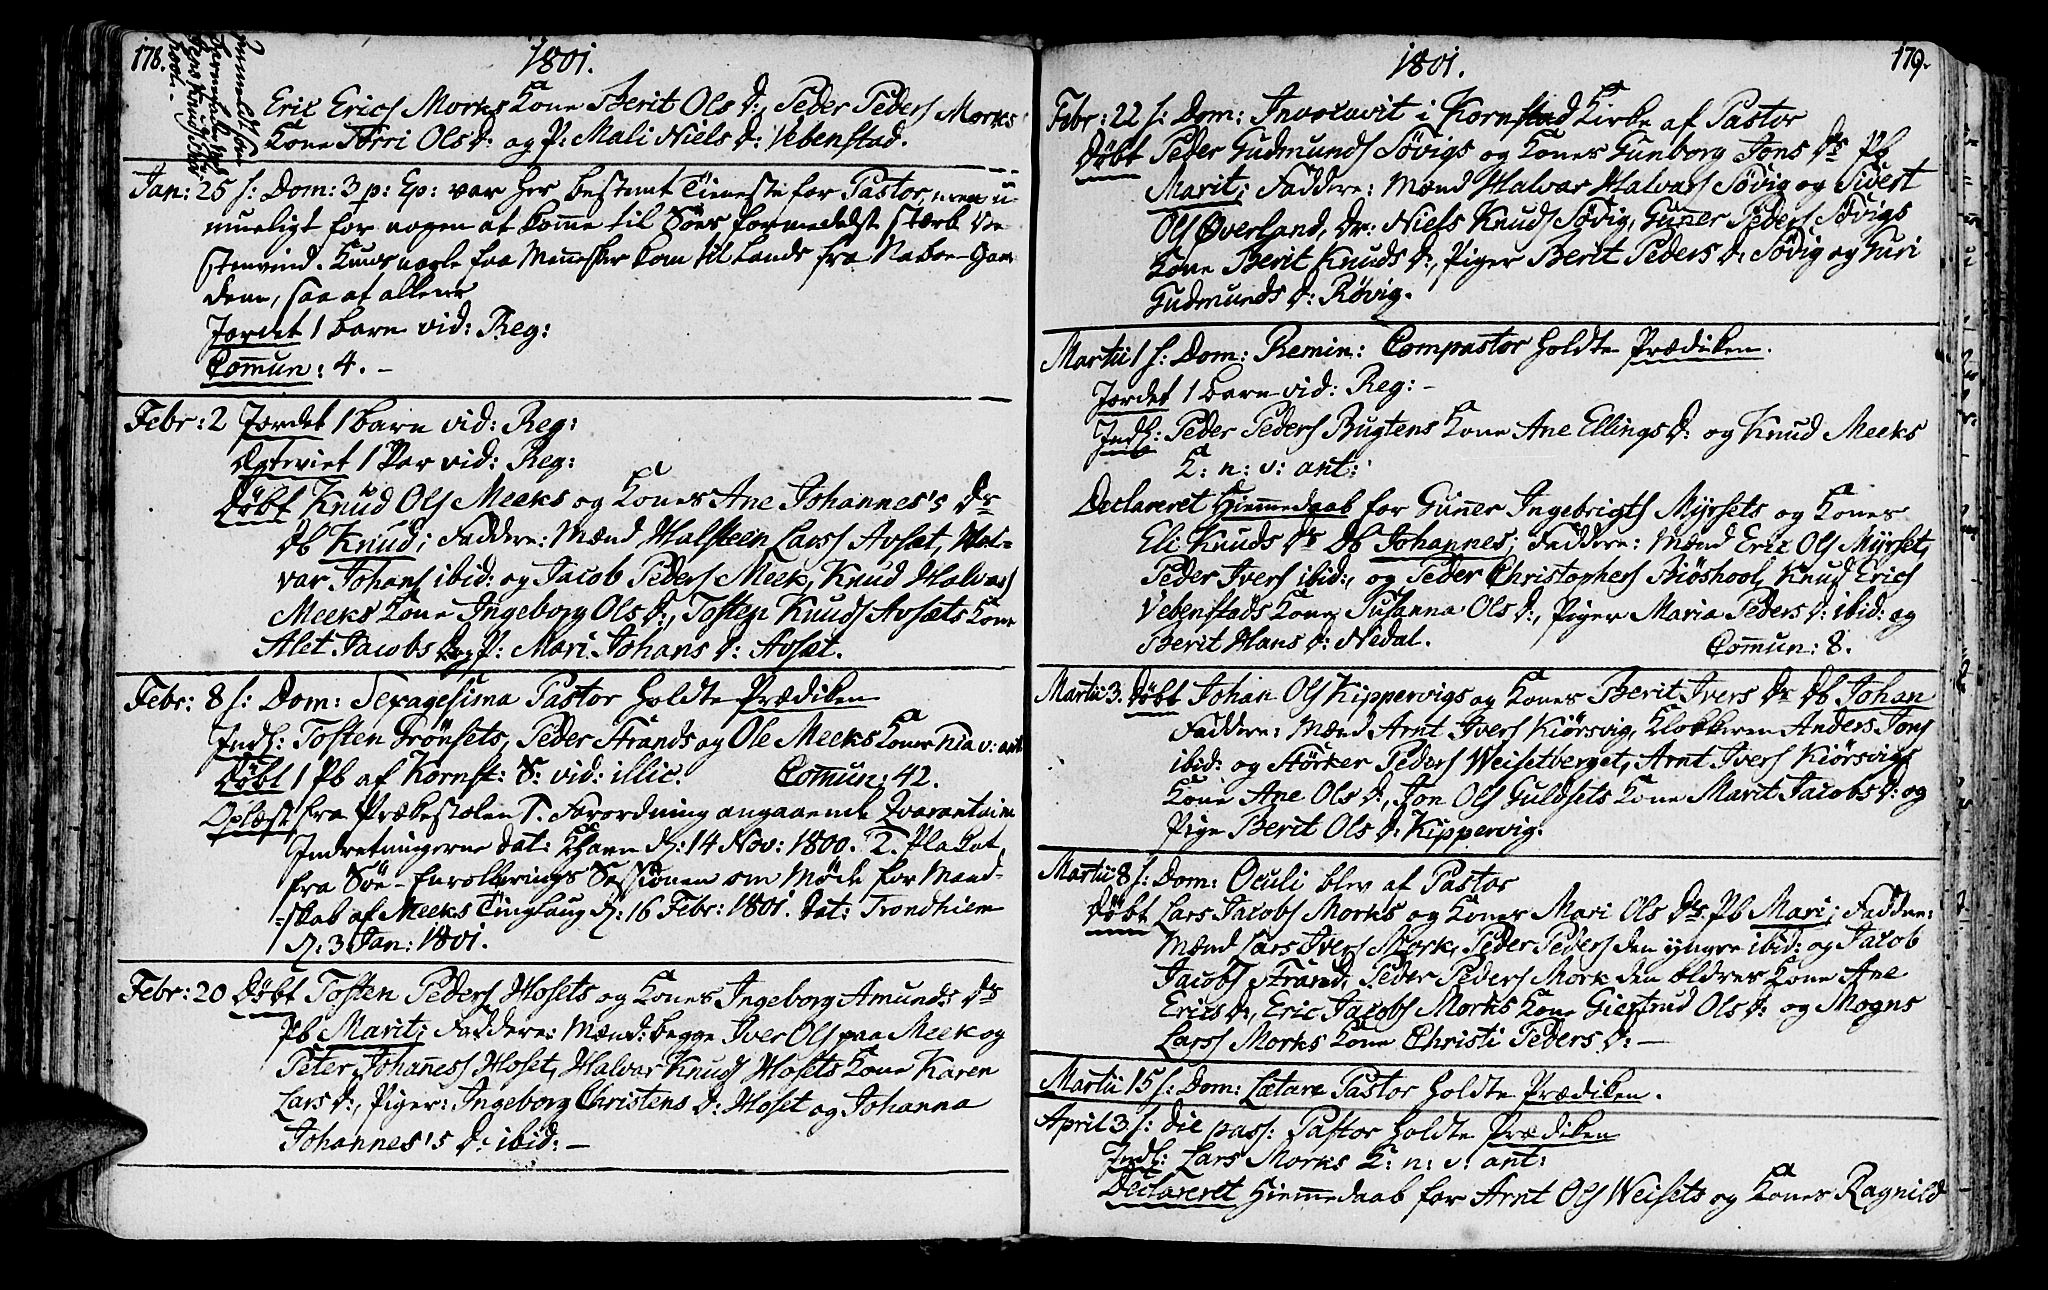 178.
1801.
Eric Erics Morks Kone Berit Ols D:, Peder Peders Morks
Kone Torri Ols D: og P: Mali Niels D: Vebenstad.
Jan: 25 s: Dom: 3 p: Ep: var her bestemt Tieneste for Pastor, men u-
mueligt for nogen at komme til Søes formedelst stærk Ve
stenvind. Kuns nogle faa Mennesker kom til Lands fra Naboe-Gaar
dene, saa at allene
Jordet 1 Barn vid: Reg:
Com̄un: 4. –
Febr: 2 Jordet 1 Barn vid: Reg:
Ægteviet 1 Par vid: Reg:
Døbt Knud Ols Meeks og Kones Ane Johannes's Dr
Db Knud; Faddere: Mænd Halsteen Lars Avsæt, Hal-
var Johans ibid: og Jacob Peders Meek, Knud Halvars
Meeks Kone Ingeborg Ols D:, Tosten Knuds Avsæts Kone
Alet Jacobs D: og P: Mari Johans D: Avsæt.
Febr: 8 s: Dom: Sexagesima Pastor holdte Prædiken
Indl: Tosten Trönsets, Peder Strands og Ole Meeks Koner n: v: ant:
Døbt 1 Pb af Kornst: S: vid: illic. Com̄un: 42.
Oplæst fra Prækestolen 1. Forordning angaaende Qvarantaine
Indretningerne dat: Khavn d: 14 Nov: 1800. 2. Plakat
fra Söe-Enrollerings Sessionen om Møde for Mand-
skab af Meeks Tinglaug d: 16 Febr: 1801. dat: Trondhiem
d: 3 Jan: 1801.
Febr: 20 Døbt Tosten Peders Hosets og Kones Ingeborg Amunds Dr
Pb Marit; Faddere: Mænd: begge Iver Ols paa Meek og
Peter Johan̄es Hoset, Halvar Knuds Hosets Kone Karen
Lars D:, Piger: Ingeborg Christens D: Hoset og Johanna
Johannes's D: ibid: –
179.
1801.
Febr: 22 s: Dom: Invocavit i Kornstad Kirke af Pastor
Døbt Peder Gudmunds Søvigs og Kones Gunborg Jons Dr Pb
Marit; Faddere: Mænd Halvar Halvars Søvig og Sivert
Ols Øverland, Dr: Niels Knuds Søvig, Gun̄er Peders Søvigs
Kone Berit Knuds D:, Piger Berit Peders D: Søvig og Guri
Gudmunds D: Røvig.
Martii 1 s: Dom: Remin: Compastor holdte Prædiken.
Jordet 1 Barn vid: Reg: –
Indl: Peder Peders Bugtens Kone Ane Ellings D: og Knud Meeks
K: n: v: ant:
Declareret Hiem̄edaab for Gun̄er Ingebrigts Myrsets og Kones
Eli Knuds Dr Db Johannes; Faddere: Mænd Eric Ols Myrset,
Peder Ivers ibid:, og Peder Christophers Siöshool, Knud Erics
Vebenstads Kone Susanna Ols D:, Piger Maria Peders D: ibid: og
Berit Hans D: Nedal. Com̄un: 8.
Martii 3. Døbt Johan Ols Kippervigs og Kones Berit Ivers Dr Db Johan
Faddere: Mænd Arnt Ivers Kiörsvig, Klokkeren Anders Jons
ibid: og Störker Peders Weisetberget, Arnt Ivers Kiörsvigs
Kone Ane Ols D:, Jon Ols Guldsets Kone Marit Jacobs D: og
Pige Berit Ols D: Kippervig.
Martii 8 s: Dom: Oculi blev af Pastor
Døbt Lars Jacobs Morks og Kones Mari Ols Dr Pb Mari; Faddere:
Mænd Lars Ivers Mork, Peder Peders den yngre ibid: og Jacob
Jacobs Strand, Peder Peders Mork den ældres Kone Ane
Erics D:, Eric Jacobs Morks Kone Giertrud Ols D: og Mogns
Lars Morks Kone Christi Peders D: –
Martii 15 s: Dom: Lætare Pastor holdte Prædiken.
April 3 s: die pass: Pastor holdte Prædiken
Indl: Lars Morks K: n: v: ant:
Declareret Hiem̄edaab for Arnt Ols Weisets og Kones Ragnild